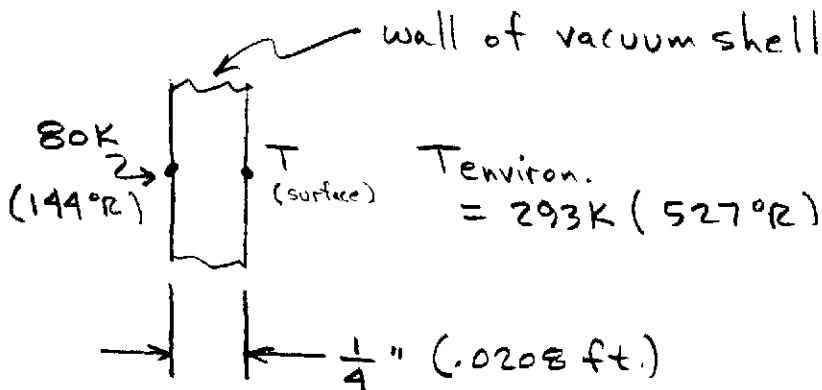 wall of vacuum shell
80K
(144°R)
T
(surface)
Tenviron.
= 293K (527°R)
1/4" (.0208 ft.)